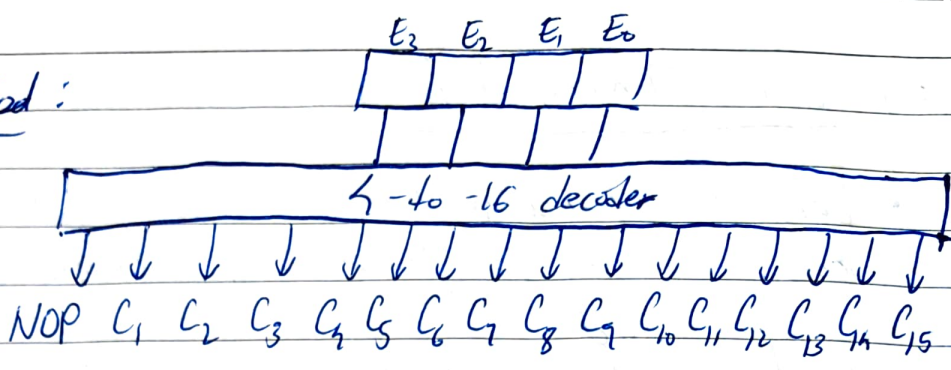 E₃ E₂ E₁ E₀
:
4-to-16 decoder
NOP C₁ C₂ C₃ C₄ C₅ C₆ C₇ C₈ C₉ C₁₀ C₁₁ C₁₂ C₁₃ C₁₄ C₁₅